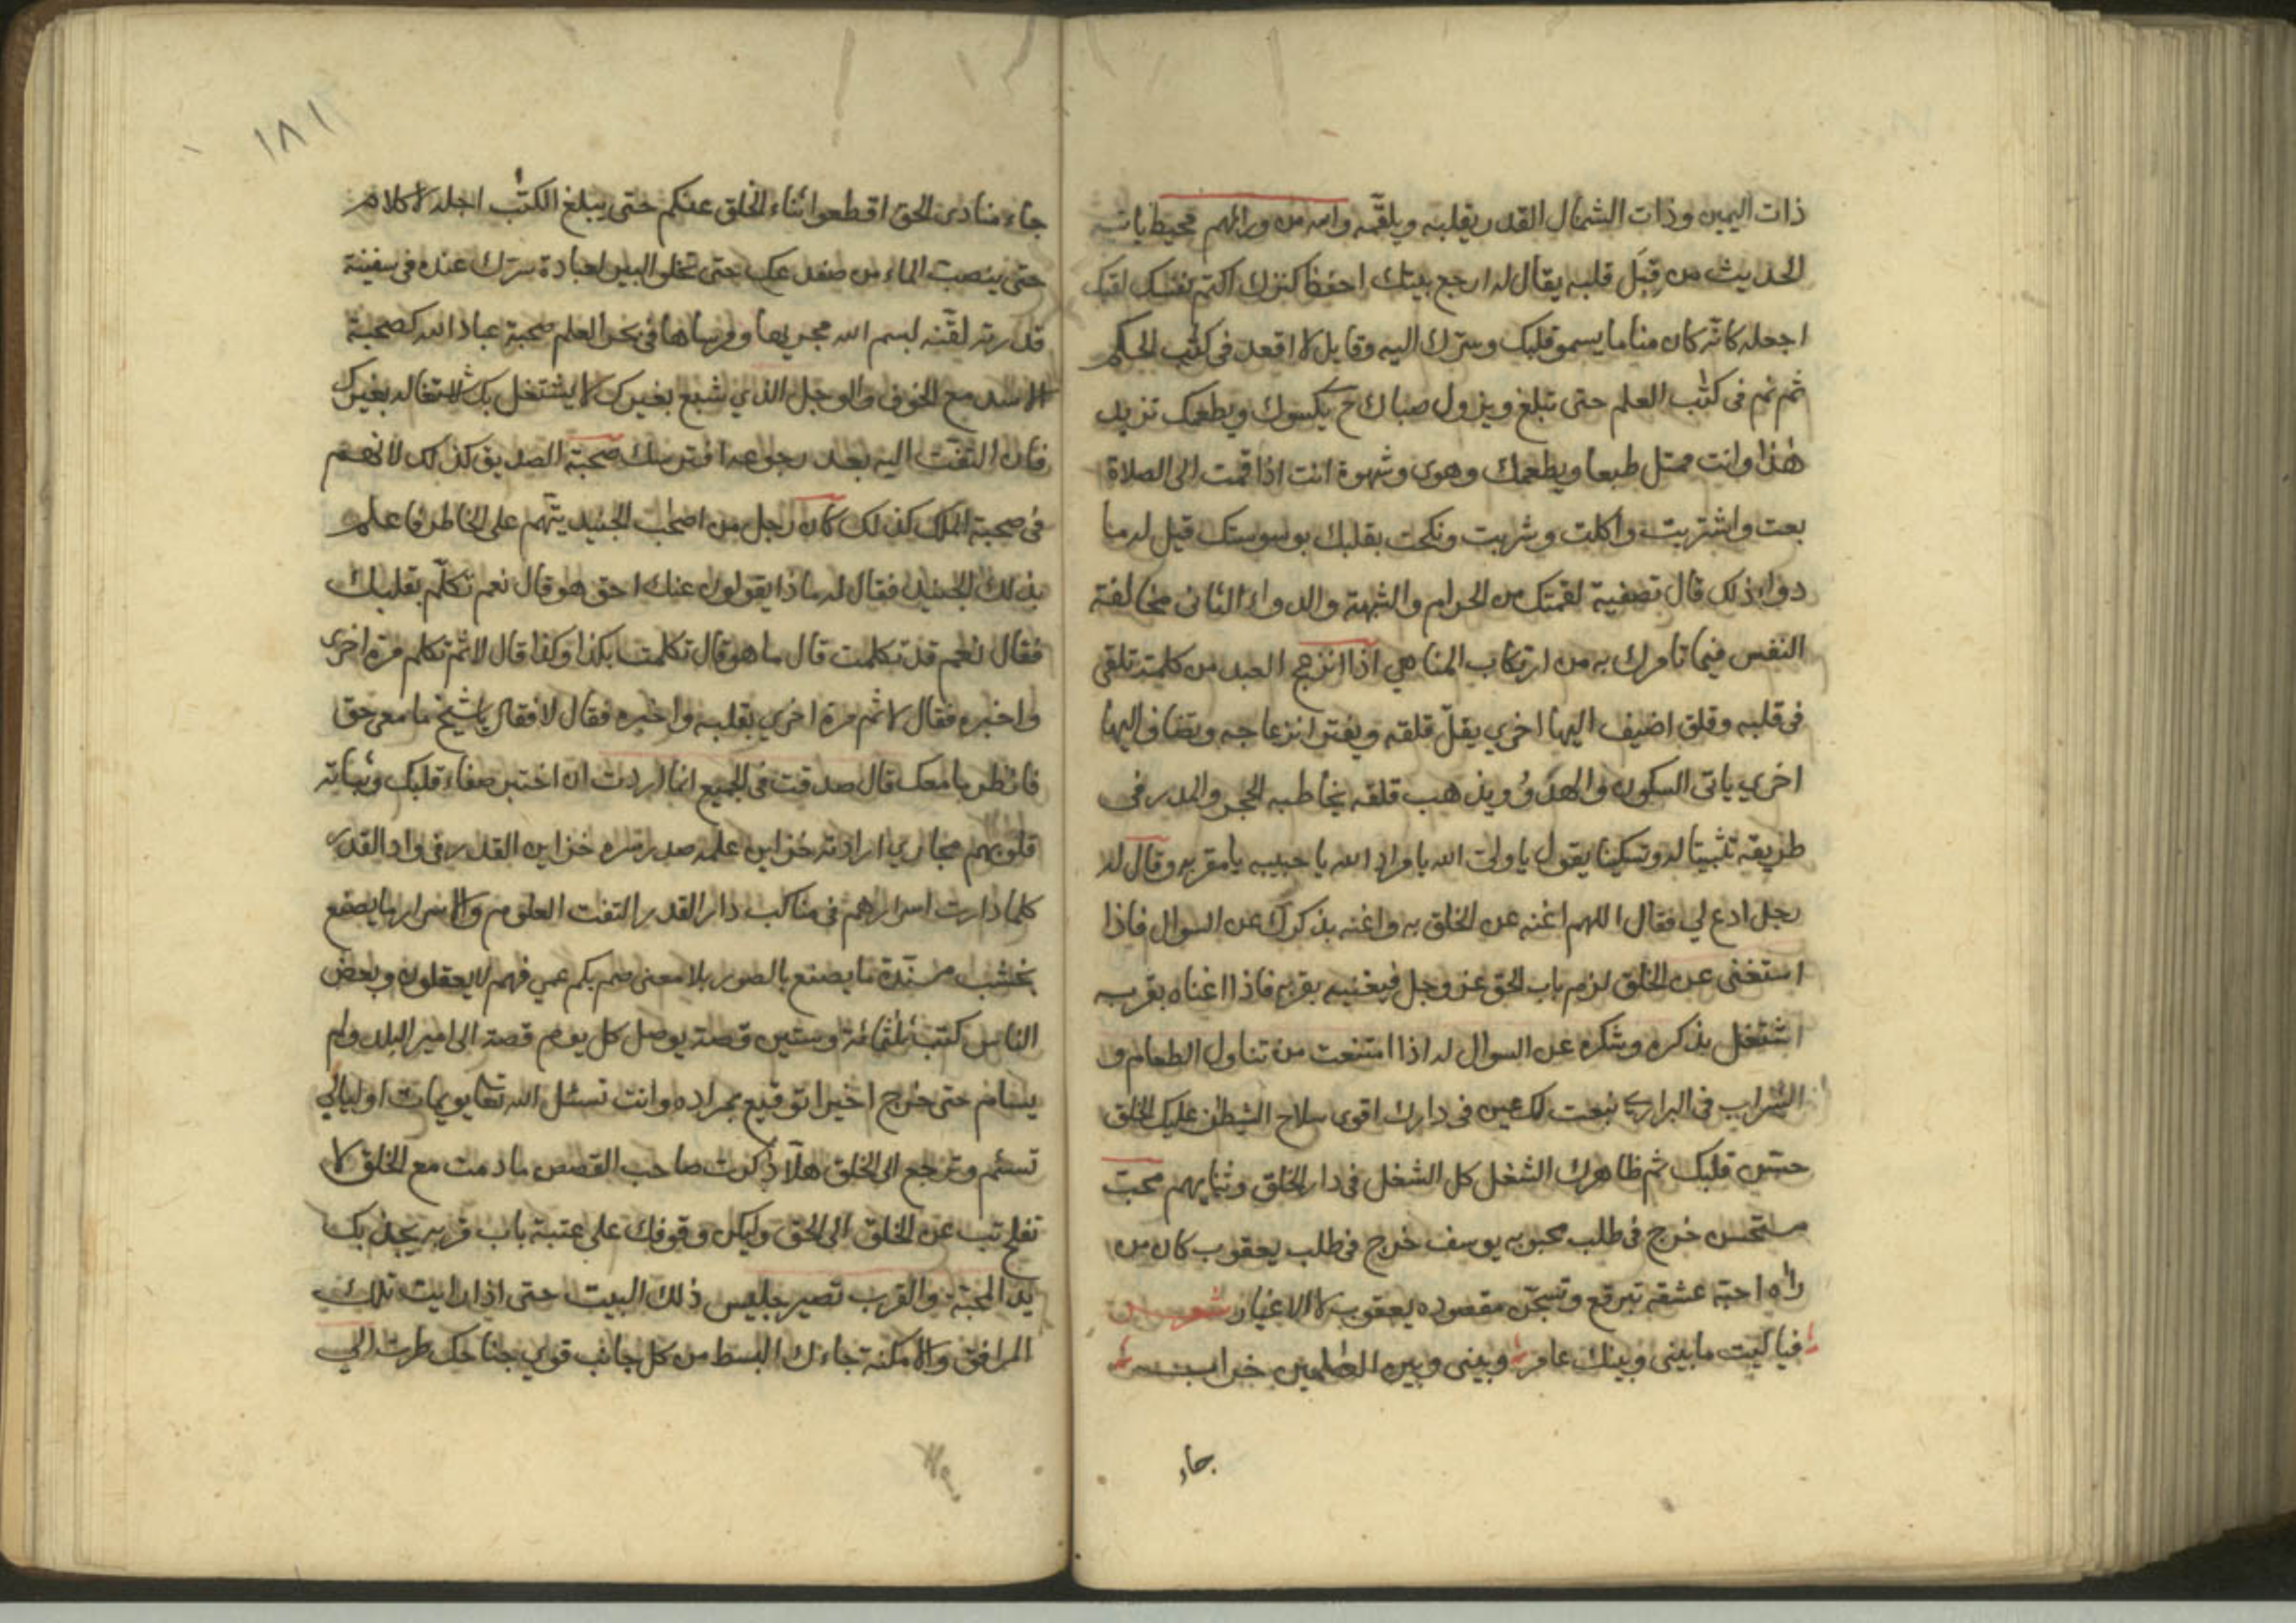 ذات اليمين وذات الشمال القدر يقلبه ويلقّمه والله من ورائهم محيط ياتيه
الحديث من قِبَل قلبه يقال له ارجع بيتك احفظ كنزك اكتم نفسك لقبك
اجعله كانّه كان مناما يسمو قلبك وسرّك اليه وقايل لا اقعد فى كتب الحكم
ثم نم فى كتب العلم حتى تبلغ ويزول صباك ح يكسوك ويطعمك تزيد
هذا وانت ممتل طبعا ويطعمك وهوى وشهوة انت اذا قمت الى الصلاة
بعت واشتريت واكلت وشربت ونكحت بقلبك بوسوستك قيل له ما
دواء ذلك قال تصفية لقمتك من الحرام والشبهة والدواء الثانى مخالفة
النفس فيما تامرك به من ارتكاب المناهي اذا انزعج العبد من كلمة تلقى
فى قلبه وقلق اضيف اليها اخري يقلّ قلقه ويفتر انزعاجه ويضاف اليها
اخري ياتى السكون والهدوُّ ويذهب قلقه يخاطبه الحجر والمدر فى
طريقه تثبيتا له وتسكينا يقول يا ولىّ الله يا مراد الله يا حبيبه يا مقربه وقال له
رجل ادع لي فقال اللهم اغنه عن الخلق به واغنه بذكرك عن السوال فاذا
استغنى عن الخلق لزم باب الحق عز وجل فيغنيه بقربه فاذا اغناه بقربه
اشتغل بذكره وشكره عن السوال له اذا امتنعت من تناول الطعام و
الشراب فى البراري نبعت لك عين فى دارك اقوى سلاح الشيطن عليك الخلق
حسّن قلبك ثم ظاهرك الشغل كل الشغل فى دار الخلق وثيابهم محبّ
مستحسن خرج فى طلب محبوبه يوسف خرج فى طلب يعقوب كان من
راه احبّه عشقه تبرقع وتسجّن مقصوده يعقوب لا الاغيار شعر
فيا ليت ما بينى وبينك عامر وبينى وبين العلمين خراب
جاء
١٨١
جاء منادى الحق اقطعوا ثناء الخلق عنكم حتى يبلغ الكتب اجله لا كلام
حتى ينصب الماء من صفد عك حتى تخلو البين لعبادة سرّك عنده فى سفينة
قدرته لقّنه لبسم الله مجريها ومرساها فى بحر العلم صحبة عباد الله كصحبة
الاسد مع الخوف والوجل الذي شبع بغيرك لا يشتغل بك لاشتغاله بغيرك
فان التفت اليه بعد رجوعه افترسك صحبة الصديق كذلك لانهم
فى صحبة الملك كذلك كان رجل من اصحب الجنيد يتّهم على الخاطر فاعلم
بذلك الجنيد فقال له ماذا يقولون عنك احق هو قال نعم تكلّم بقلبك
فقال نعم قد تكلمت قال ما هو قال تكلمت بكذا وكذا قال لا ثم تكلم مرة اخرى
واخبره فقال لا ثم مرة اخري بقلبه واخبره فقال لا فقال يا شيخ ما معى حق
فانظر ما معك قال صدقت فى الجميع انما اردت ان اختبر صفاء قلبك وثباته
قلوبهم مجاري ارادته خزاين علمه صدر سره خزاين القدر فى واد القدر
كلما دارت اسرارهم فى مناكب دار القدر التفت العلوم والاسرار ما يصنع
بخشب مسنّدة ما يصنع بالصور بلا معنى صم بكم عمي فهم لا يعقلون وبعض
الناس كتب ثلثمائة وستين قصة يوصل كل يوم قصة الى امير البلد ولم
يسام حتى خرج اخيرا توقيع بمراده وانت تسئل الله تعا يويمات او ليالي
تسئم وترجع الى الخلق هلّا ذكرت صاحب القصص ما دمت مع الخلق لا
تفلح تب عن الخلق الى الحق وليكن وقوفك على عتبة باب قربه يجذبك
يد المحبّة والقرب تصير جليس ذلك البيت حتى اذا رايت تلك
المرافق والامكنة جاءك البسط من كل جانب قوي جناحك طرت الي